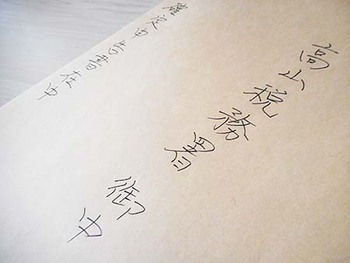 高山税務署 御中
確定申告書在中